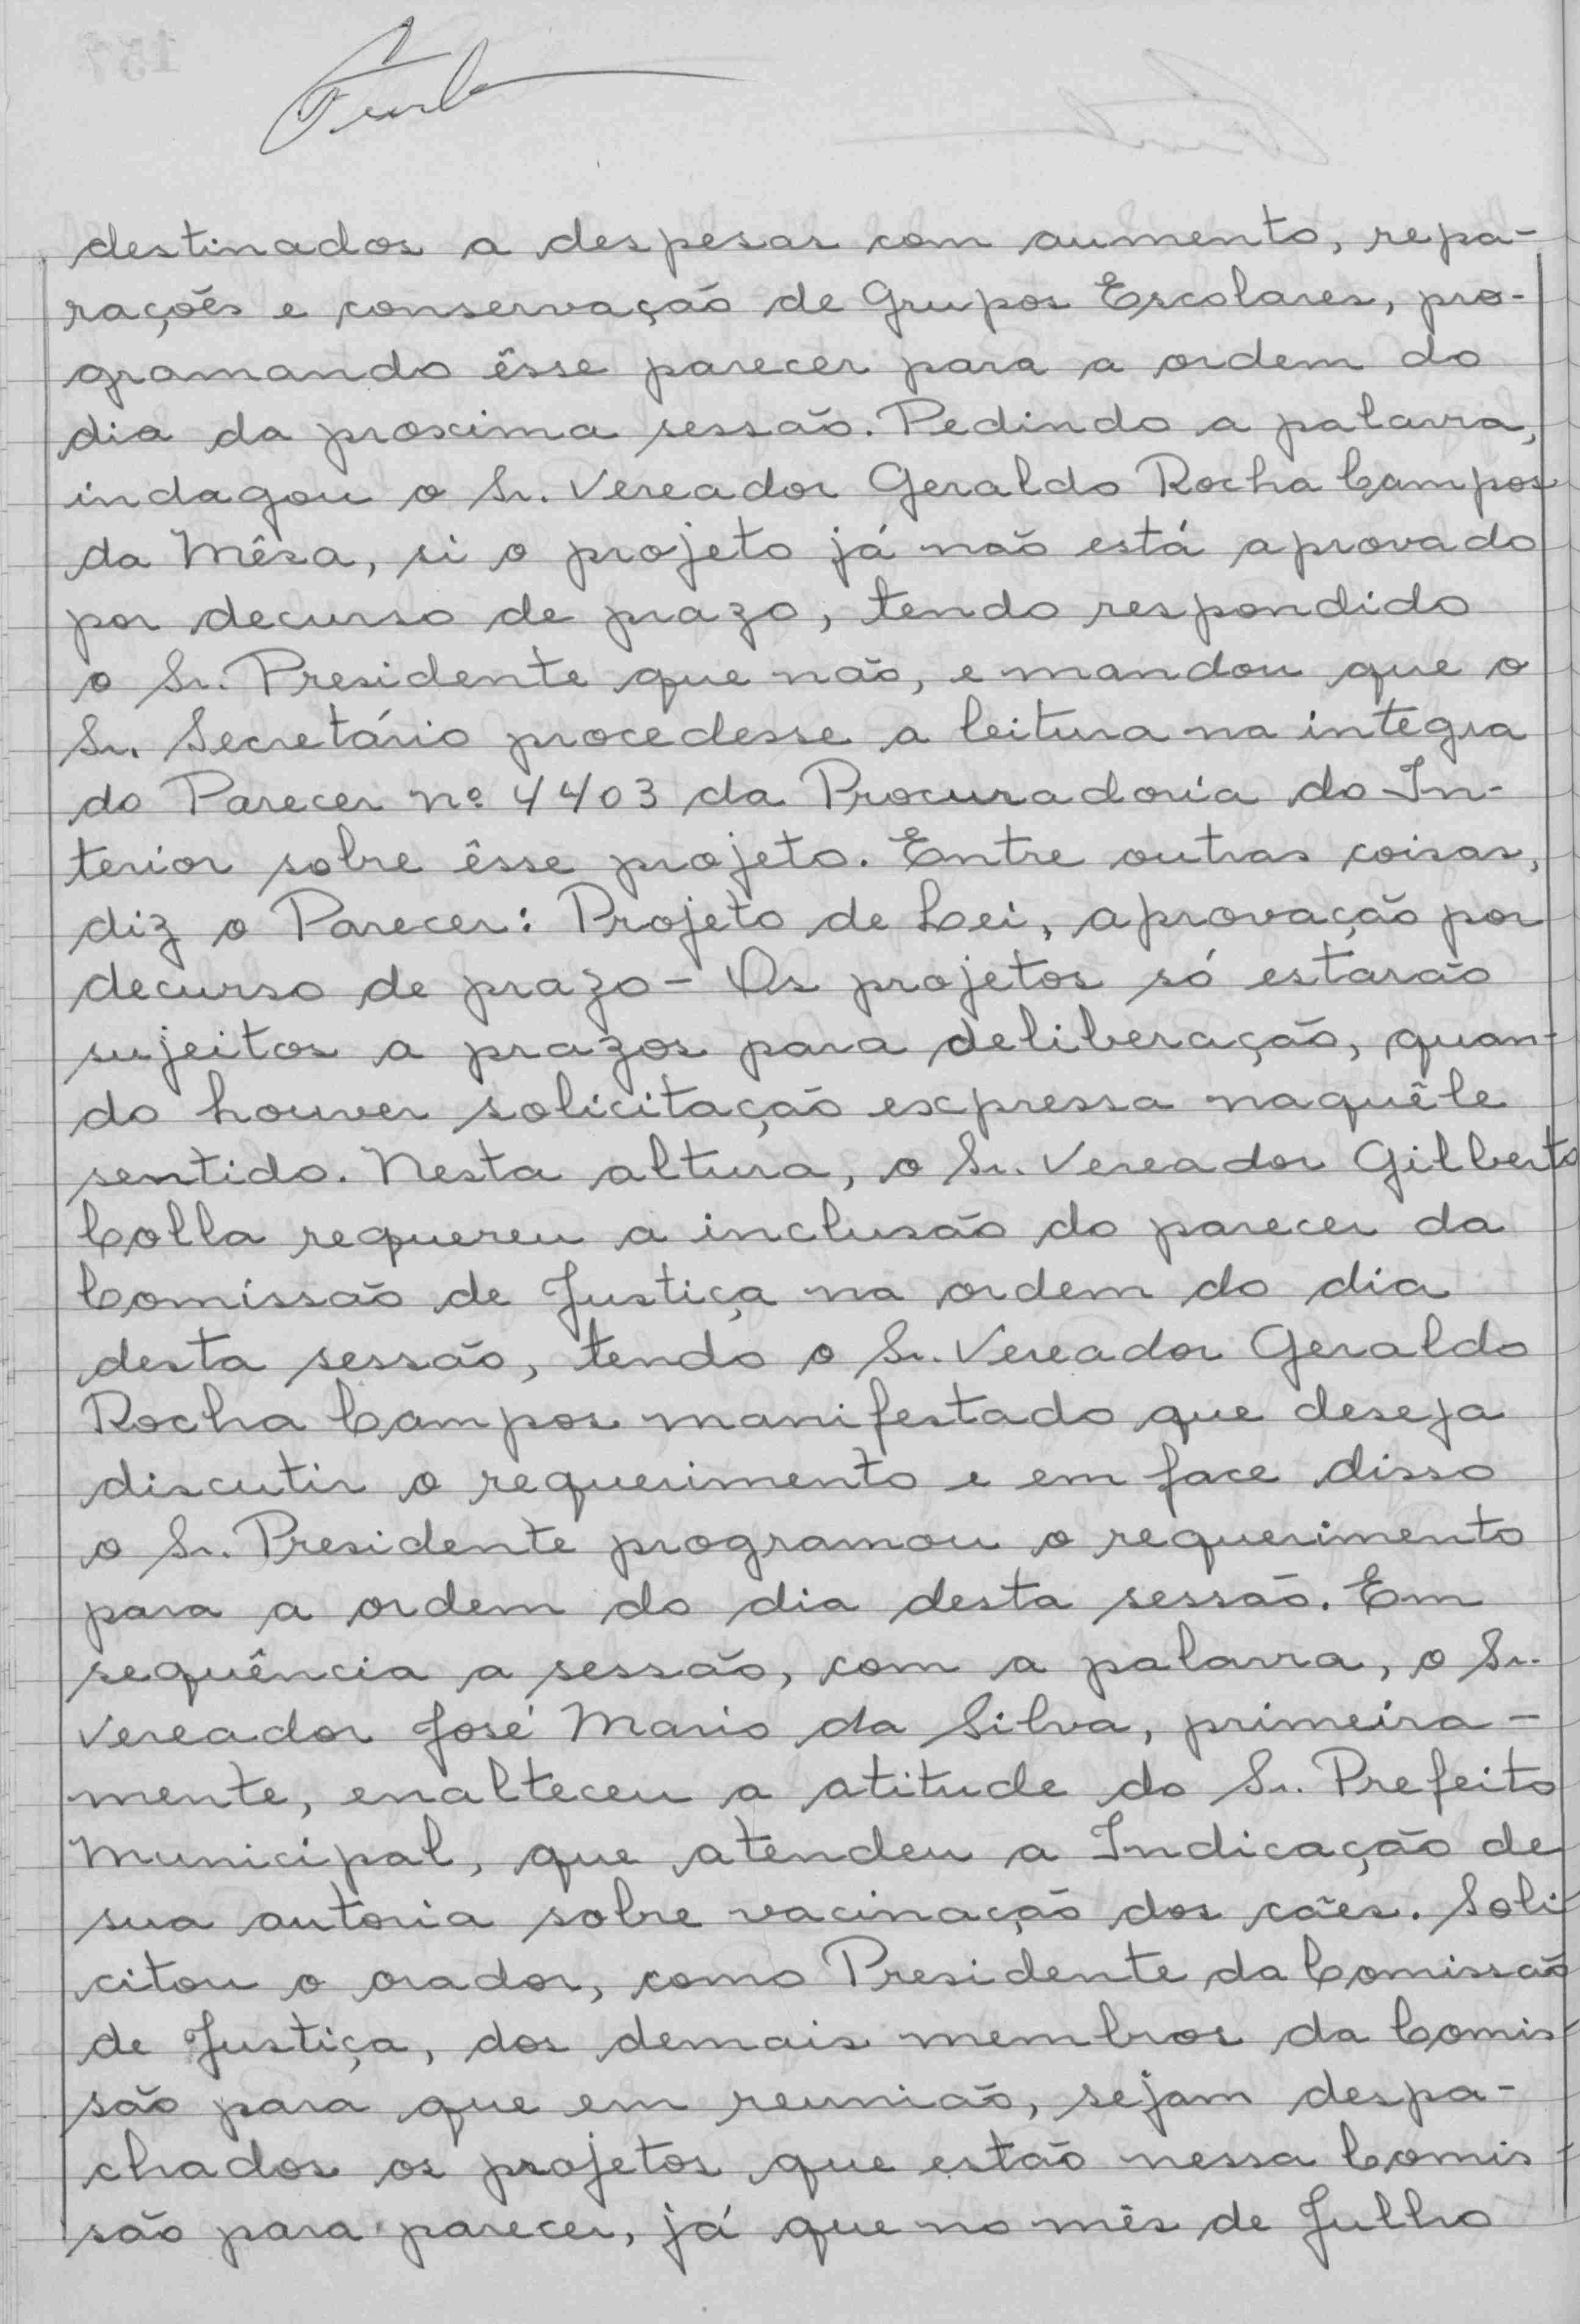 destinados a despesas com aumento, repa-
rações e conservação de Grupos Escolares, pro-
gramando êsse parecer para a ordem do
dia da proxima sessão. Pedindo a palavra,
indagou o Sr. Vereador Geraldo Rocha Campos
da Mêsa, si o projeto já não está aprovado
por decurso de prazo, tendo respondido
o Sr. Presidente que não, e mandou que o
Sr. Secretário procedesse a leitura na integra
do Parecer nº 4403 da Procuradoria do In-
terior sobre êsse projeto. Entre outras coisas,
diz o Parecer: Projeto de Lei, aprovação por
decurso de prazo - Os projetos só estarão
sujeitos a prazos para deliberação, quan-
do houver solicitação expressa naquêle
sentido. Nesta altura, o Sr. Vereador Gilberto
Colla requereu a inclusão do parecer da
Comissão de Justiça na ordem do dia
desta sessão, tendo o Sr. Vereador Geraldo
Rocha Campos manifestado que deseja
discutir o requerimento e em face disso
o Sr. Presidente programou o requerimento
para a ordem do dia desta sessão. Em
sequência a sessão, com a palavra, o Sr.
Vereador José Mario da Silva, primeira-
mente, enalteceu a atitude do Sr. Prefeito
Municipal, que atendeu a Indicação de
sua autoria sobre vacinação dos cães. Soli-
citou o orador, como Presidente da Comissão
de Justiça, dos demais membros da Comis-
são para que em reunião, sejam despa-
chados os projetos que estão nessa Comis-
são para parecer, já que no mês de Julho